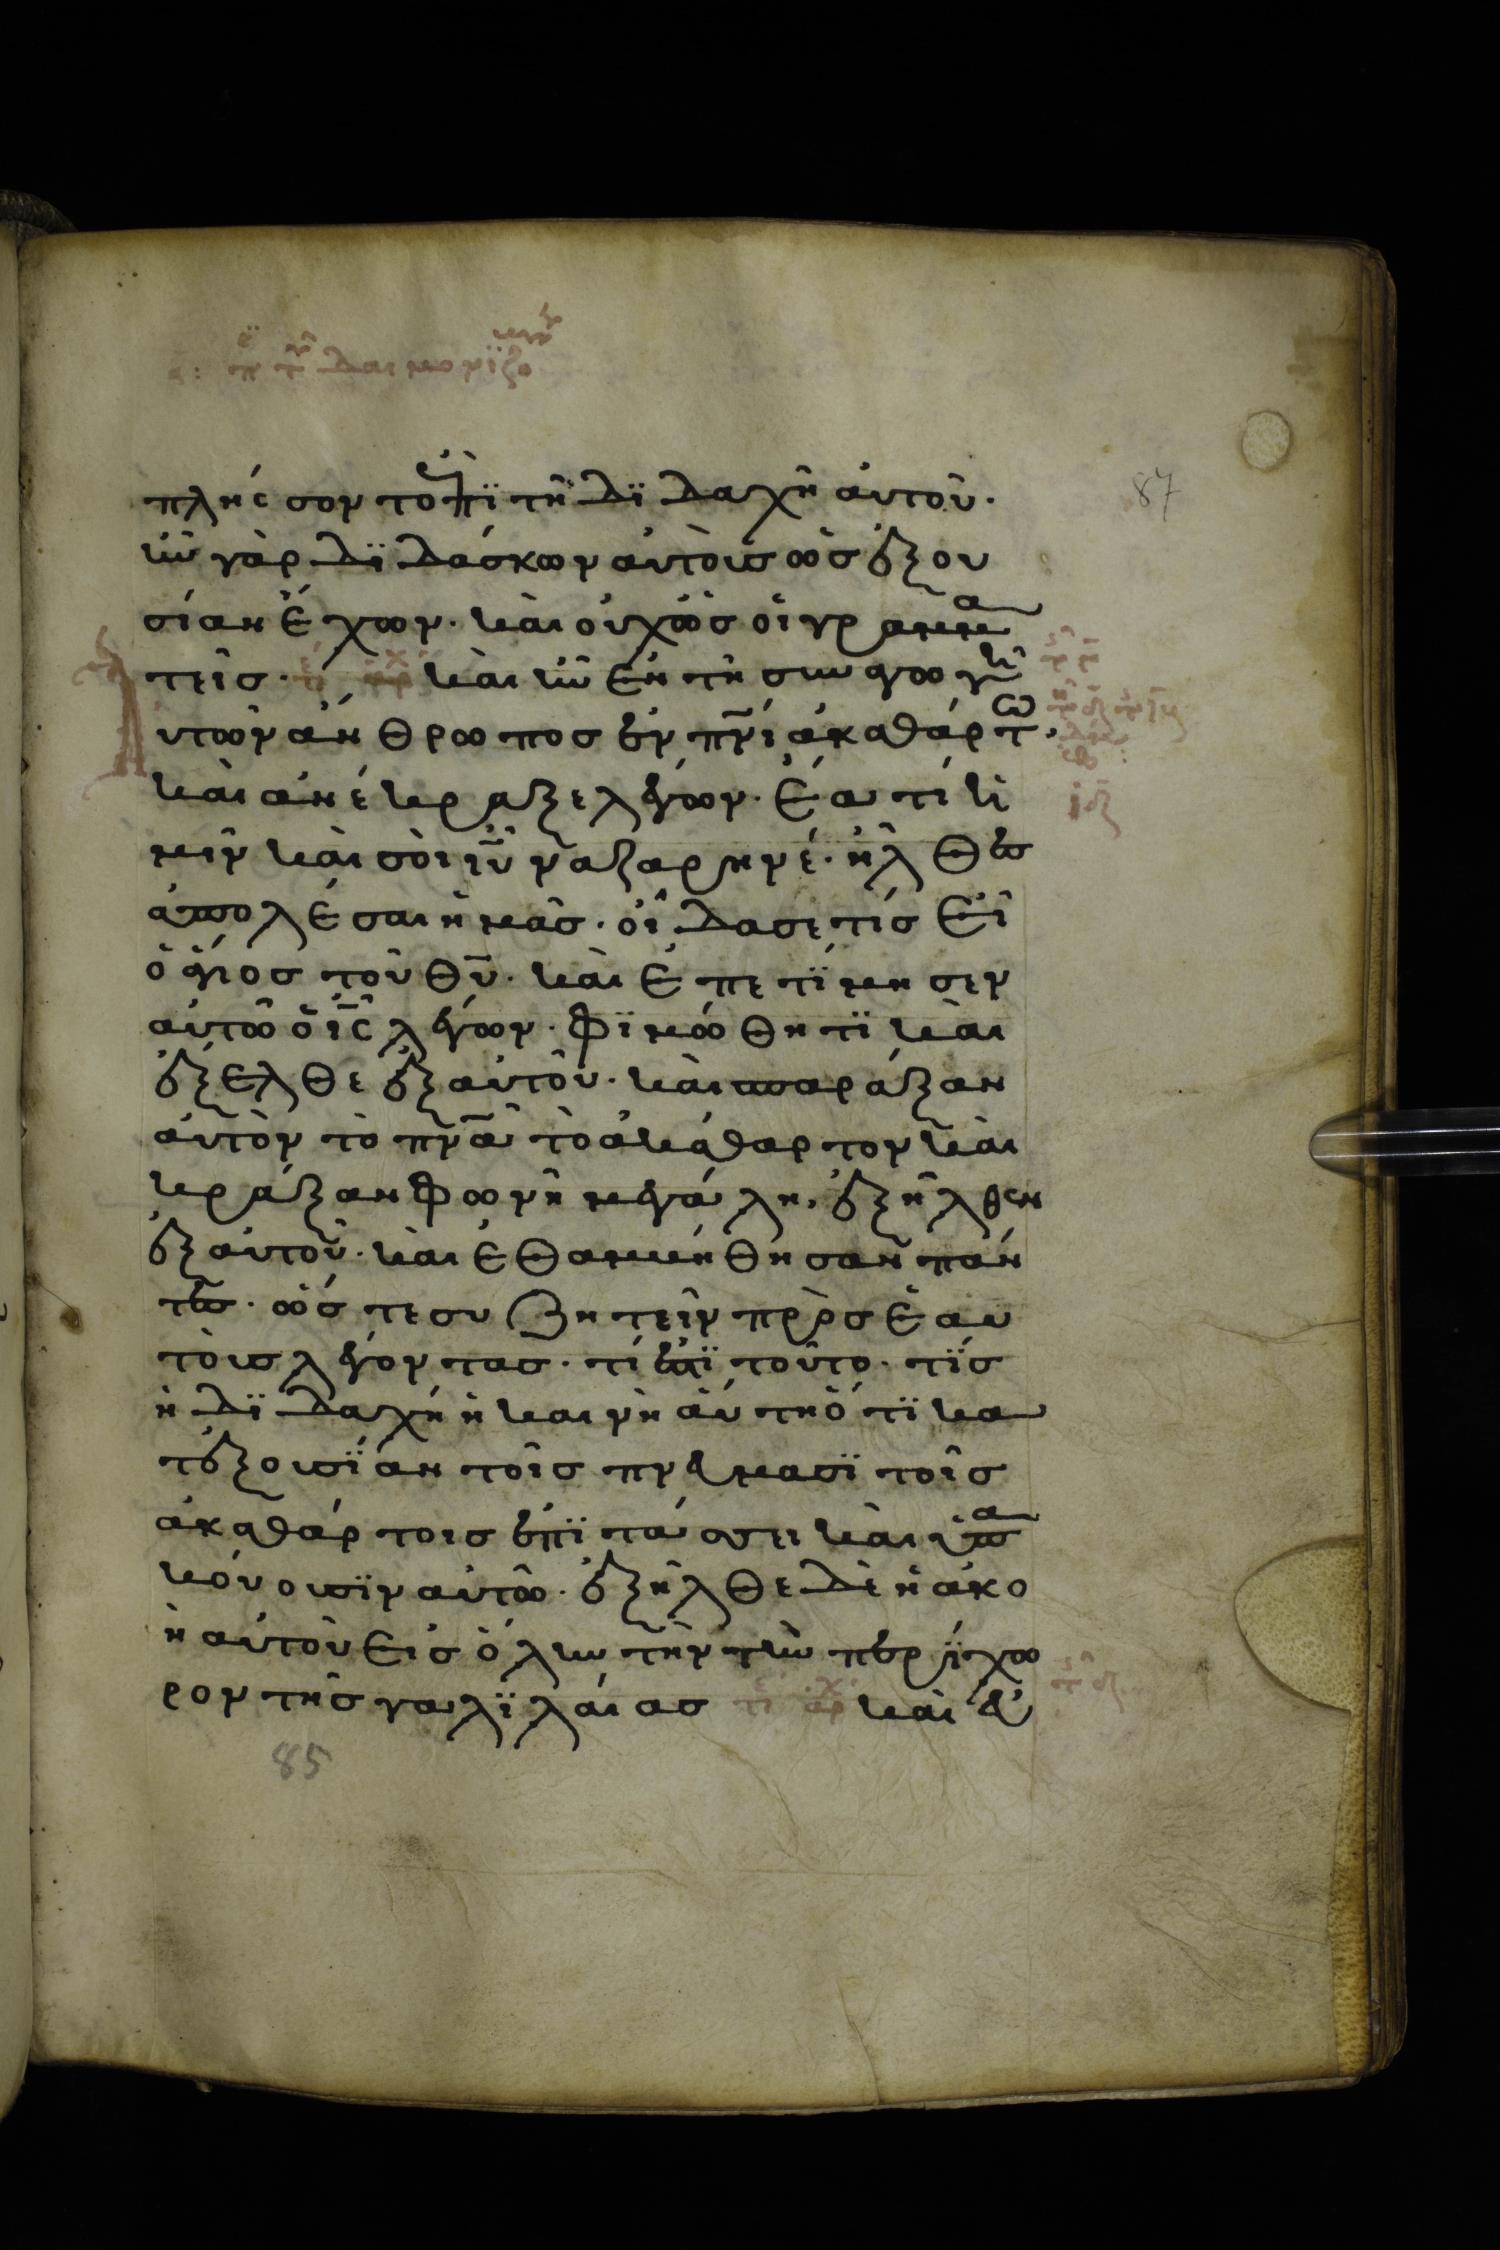 πλήσσοντο ἐπὶ τῆ διδαχῆ αὐτοῦ·
ἦν γὰρ διδάσκων αὐτοὺς ὡς ἐξου
σίαν ἔχων· καὶ οὐχ ὡς οἱ γραμμα
τεῖς· καὶ ἦν ἐν τῆ συναγωγῆ
αυτῶν ἄνθρωπος ἐν πνι ἀκαθάρτω,
καὶ ἀνέκραξε λέγων· ἔα τί ἡ
μῖν καὶ σοὶ ιυ ναζαρηνέ· ἦλθες
ἀπολέσαι ἡμᾶς· οἶδα σε τίς εἶ
ὁ ἅγιος τοῦ θυ· καὶ ἐπετίμησεν
αὐτῶ ὁ ις λέγων· φιμώθητι καὶ
ἔξελθε ἐξ αὐτοῦ· καὶ σπαράξαν
αὐτὸν τὸ πνα τὸ ἀκάθαρτον καὶ
κράξαν φωνῆ μεγάλη, ἐξῆλθεν
ἐξ αὐτοῦ· καὶ ἐθαμβήθησαν πάν
τες· ὥς τε συζητεῖν πρὸς ἑαυ
τοὺς λέγοντας· τί ἐστὶ τοῦτο· τίς
ἡ διδαχὴ ἡ καινὴ αὕτη ὅτι κα
τ ἐξουσίαν τοῖς πνεύμασι τοῖς
ἀκαθάρτοις ἐπιτάσσει καὶ ὑπα
κούουσιν αὐτῶ· ἐξῆλθε δὲ ἡ ἀκο
ὴ αὐτοῦ εἰς ὅλην τὴν περίχω
ρον τῆς γαλιλαίας καὶ εὐ
87
85